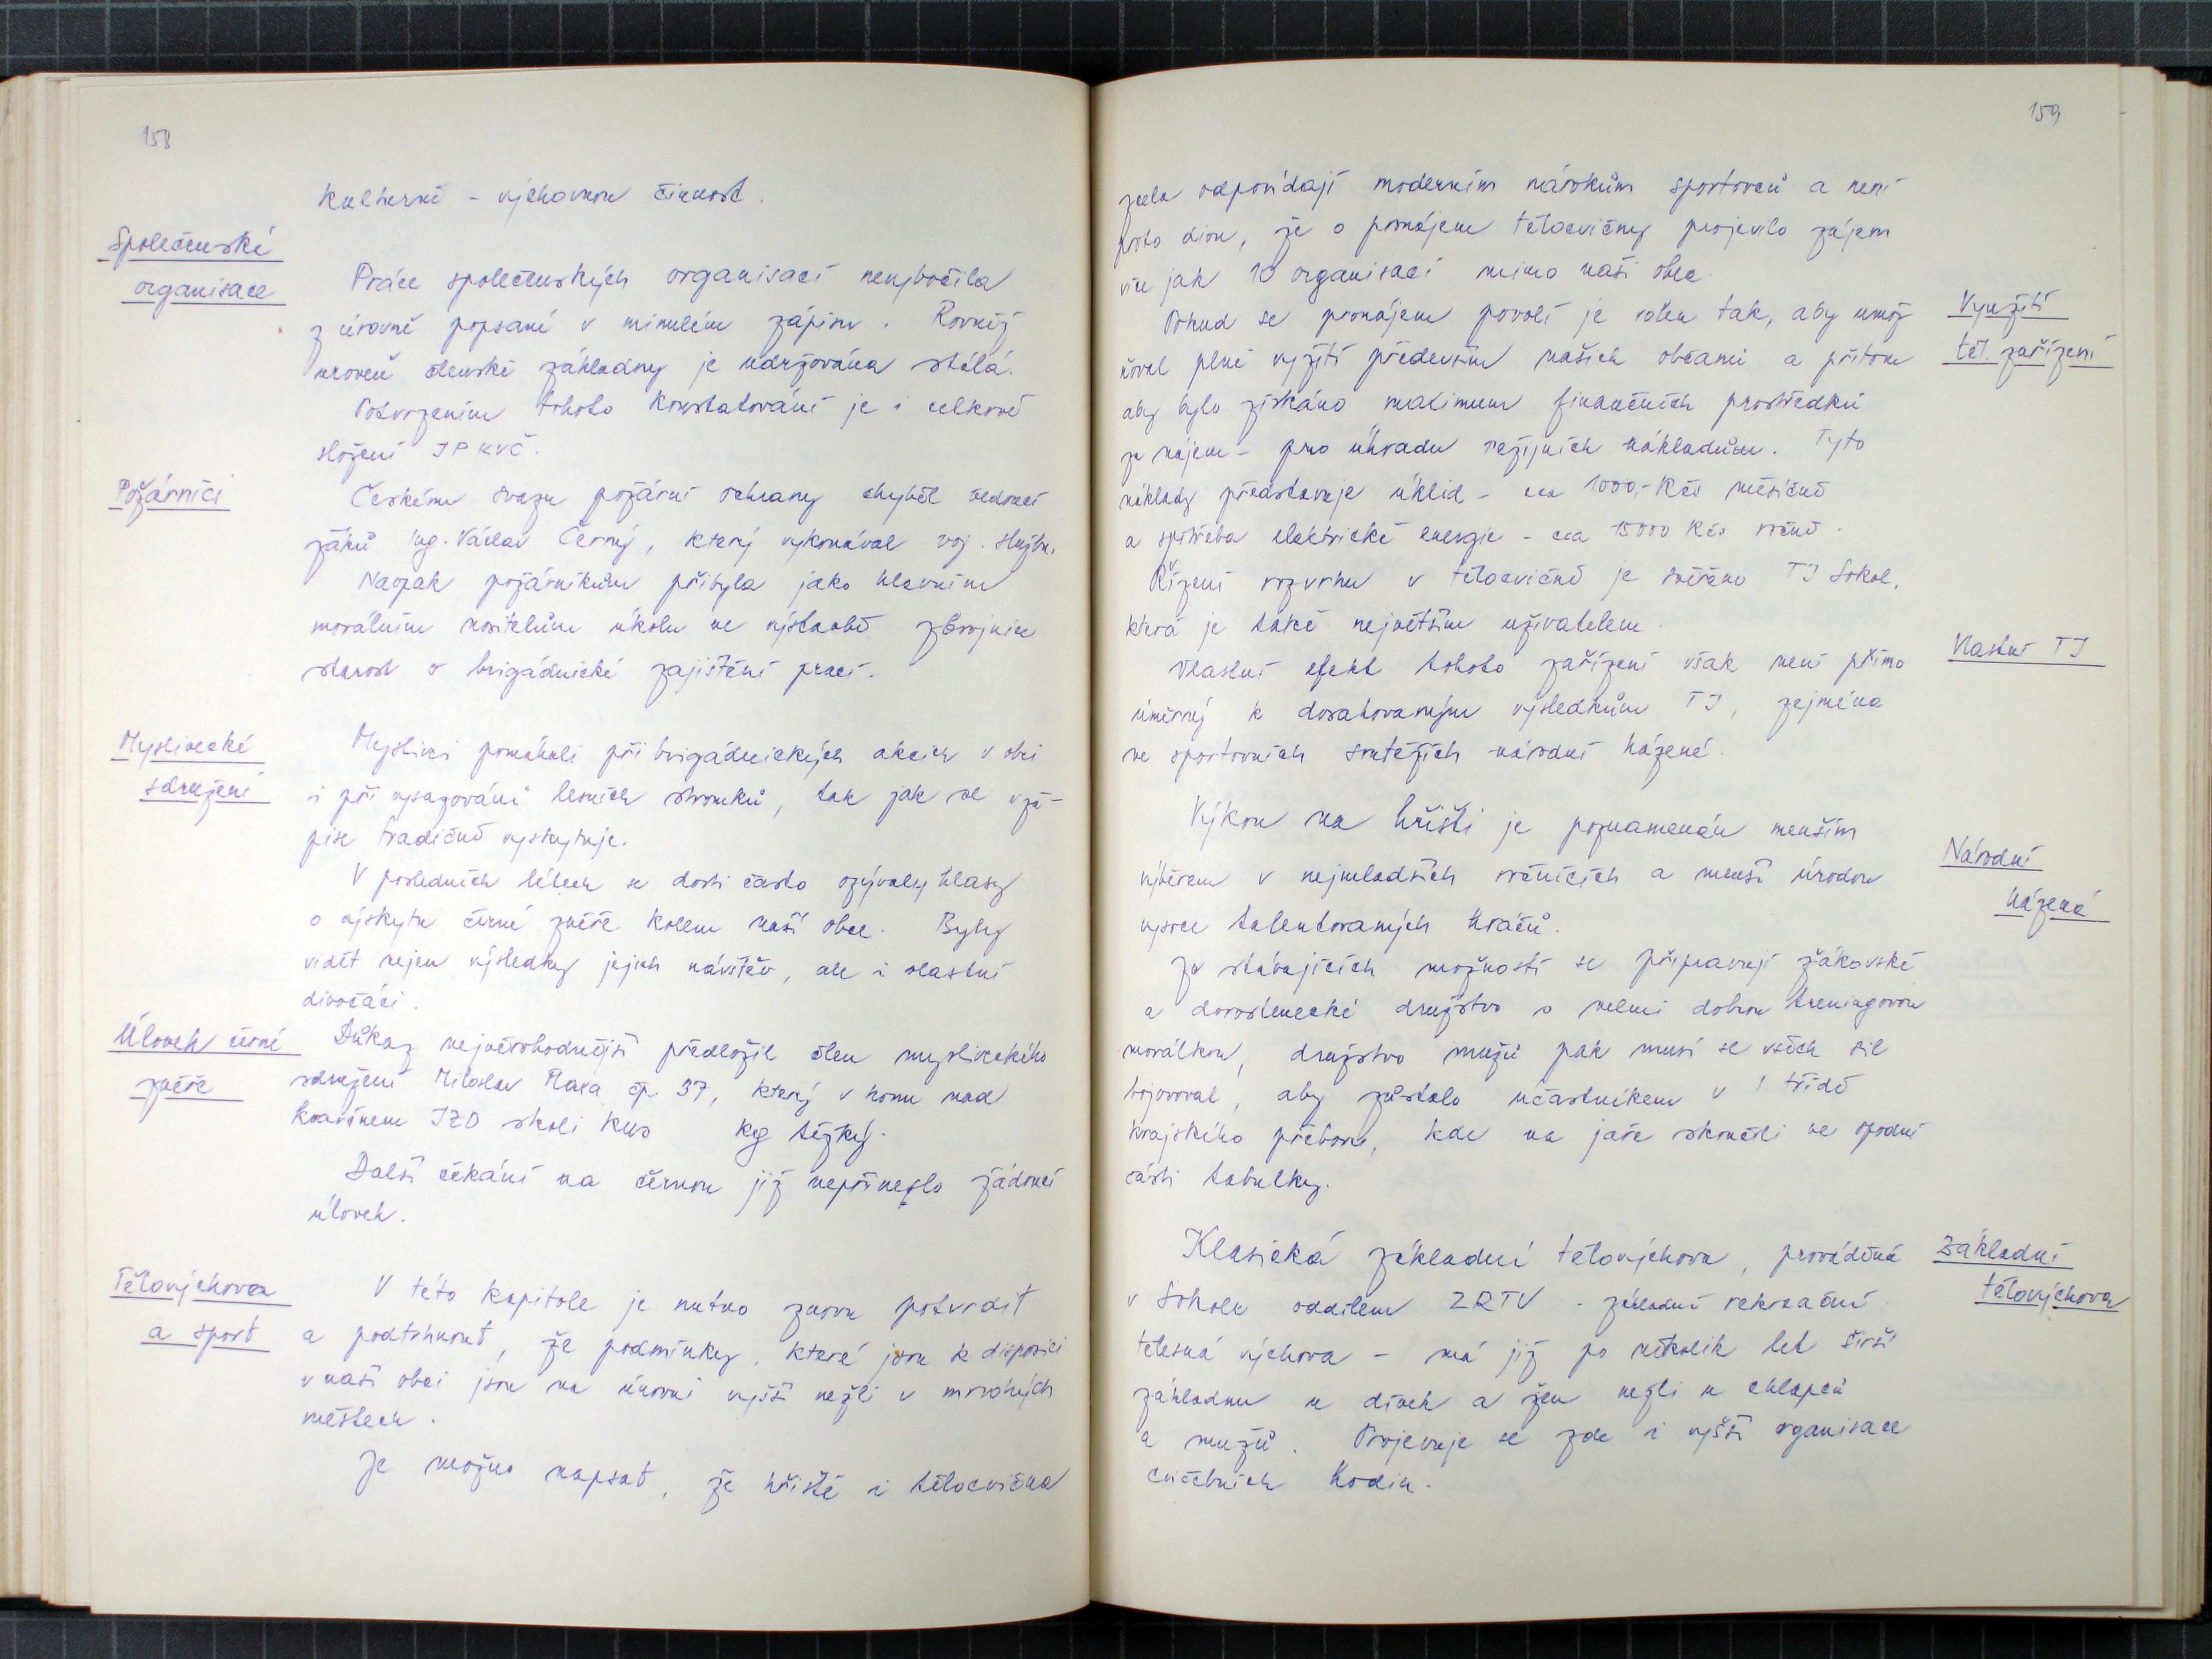 158
kulturně - výchovnou činnost.
Společenské
organisace
Práce společenských organisací nevybočila
z úrovně popsané v minulém zápisu. Rovněž
úroveň členské základny je udržována stálá.
Potvrzením tohoto konstatování je i celkové
složení JPKVČ.
Požárníci
Českému svazu požární ochrany chyběl vedoucí
žáků Ing. Václav Černý, který vykonával voj. službu.
Naopak požárníkům přibyla jako hlavním
morálním nositelům úkolu ve výstavbě zbrojnice
starost o brigádnické zajištění prací.
Myslivecké
sdružení
Myslivci pomáhali při brigádnických akcích v obci
i při vysazování lesních stromků, tak jak se v zá-
pise tradičně vyskytuje.
V posledních létech se dosti často ozývaly hlasy
o výskytu černé zvěře kolem naší obce. Byly
vidět nejen výsledky jejich návštěv, ale i vlastní
divočáci.
Úlovek černé
zvěře
Důkaz nejvěrohodnější předložil člen mysliveckého
sdružení Miloslav Maxa čp. 37, který v honu nad
kravínem JZD skolil kus kg těžký.
Další čekání na černou již nepřineslo žádoucí
úlovek.
Tělovýchova
a sport
V této kapitole je nutno znovu potvrdit
a podtrhnout, že podmínky, které jsou k disposici
v naší obci jsou na úrovni vyšší nežli v mnohých
městech.
Je možno napsat, že hřiště i tělocvična
159
zcela odpovídají moderním nárokům sportovců a není
proto divu, že o pronájem tělocvičny projevilo zájem
více jak 10 organisací mimo naší obec.
Využití
těl. zařízení
Pokud se pronájem povolí je volen tak, aby umož
ňoval plné vyžití především našich občanů a přitom
aby bylo získáno maximum finančních prostředků
za nájem - pro úhradu režijních nákladům. Tyto
náklady představuje úklid - cca 1000,- Kčs měsíčně
a spotřeba elektrické energie - cca 15000 Kčs ročně.
Řízení rozvrhu v tělocvičně je svěřeno TJ Sokol,
která je také největším uživatelem.
Vlastní TJ
Vlastní efekt tohoto zařízení však není přímo
úměrný k dosahovaným výsledkům TJ, zejména
ve sportovních soutěžích národní házené.
Národní
házená
Výkon na hřišti je poznamenán menším
výběrem v nejmladších ročnících a menší úrodou
vysoce talentovaných hráčů.
Ze stávajících možností se připravují žákovské
a dorostenecké družstvo s velmi dobrou treningovou
morálkou, družstvo mužů pak musí ze všech sil
bojovoval, aby zůstalo účastníkem v I třídě
krajského přeboru, kde na jaře skončili ve spodní
části tabulky.
Základní
tělovýchova
Klasická základní tělovýchova, prováděná
v Sokole oddílem ZRTV - základní rekreační
tělesná výchova - má již po několik let širší
základnu u dívek a žen nežli u chlapců
a mužů. Projevuje se zde i vyšší organisace
cvičebních hodin.